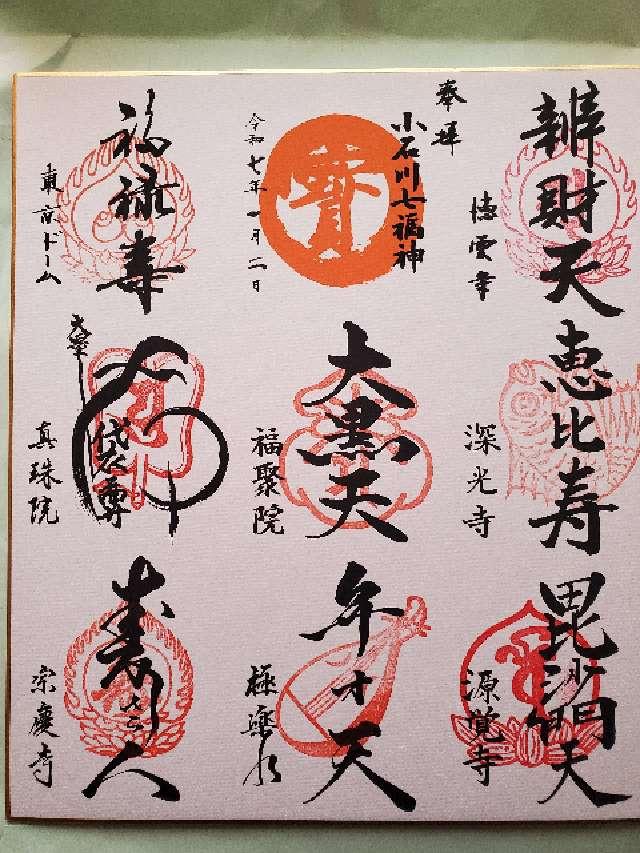 奉拝
辨財天
徳雲寺
小石川七福神
寳
令和七年一月二日
福禄寿
東京ドーム
恵比寿
深光寺
大黒天
福聚院
布袋尊
真珠院
毘沙門天
源覚寺
弁才天
極楽水
寿老人
宗慶寺